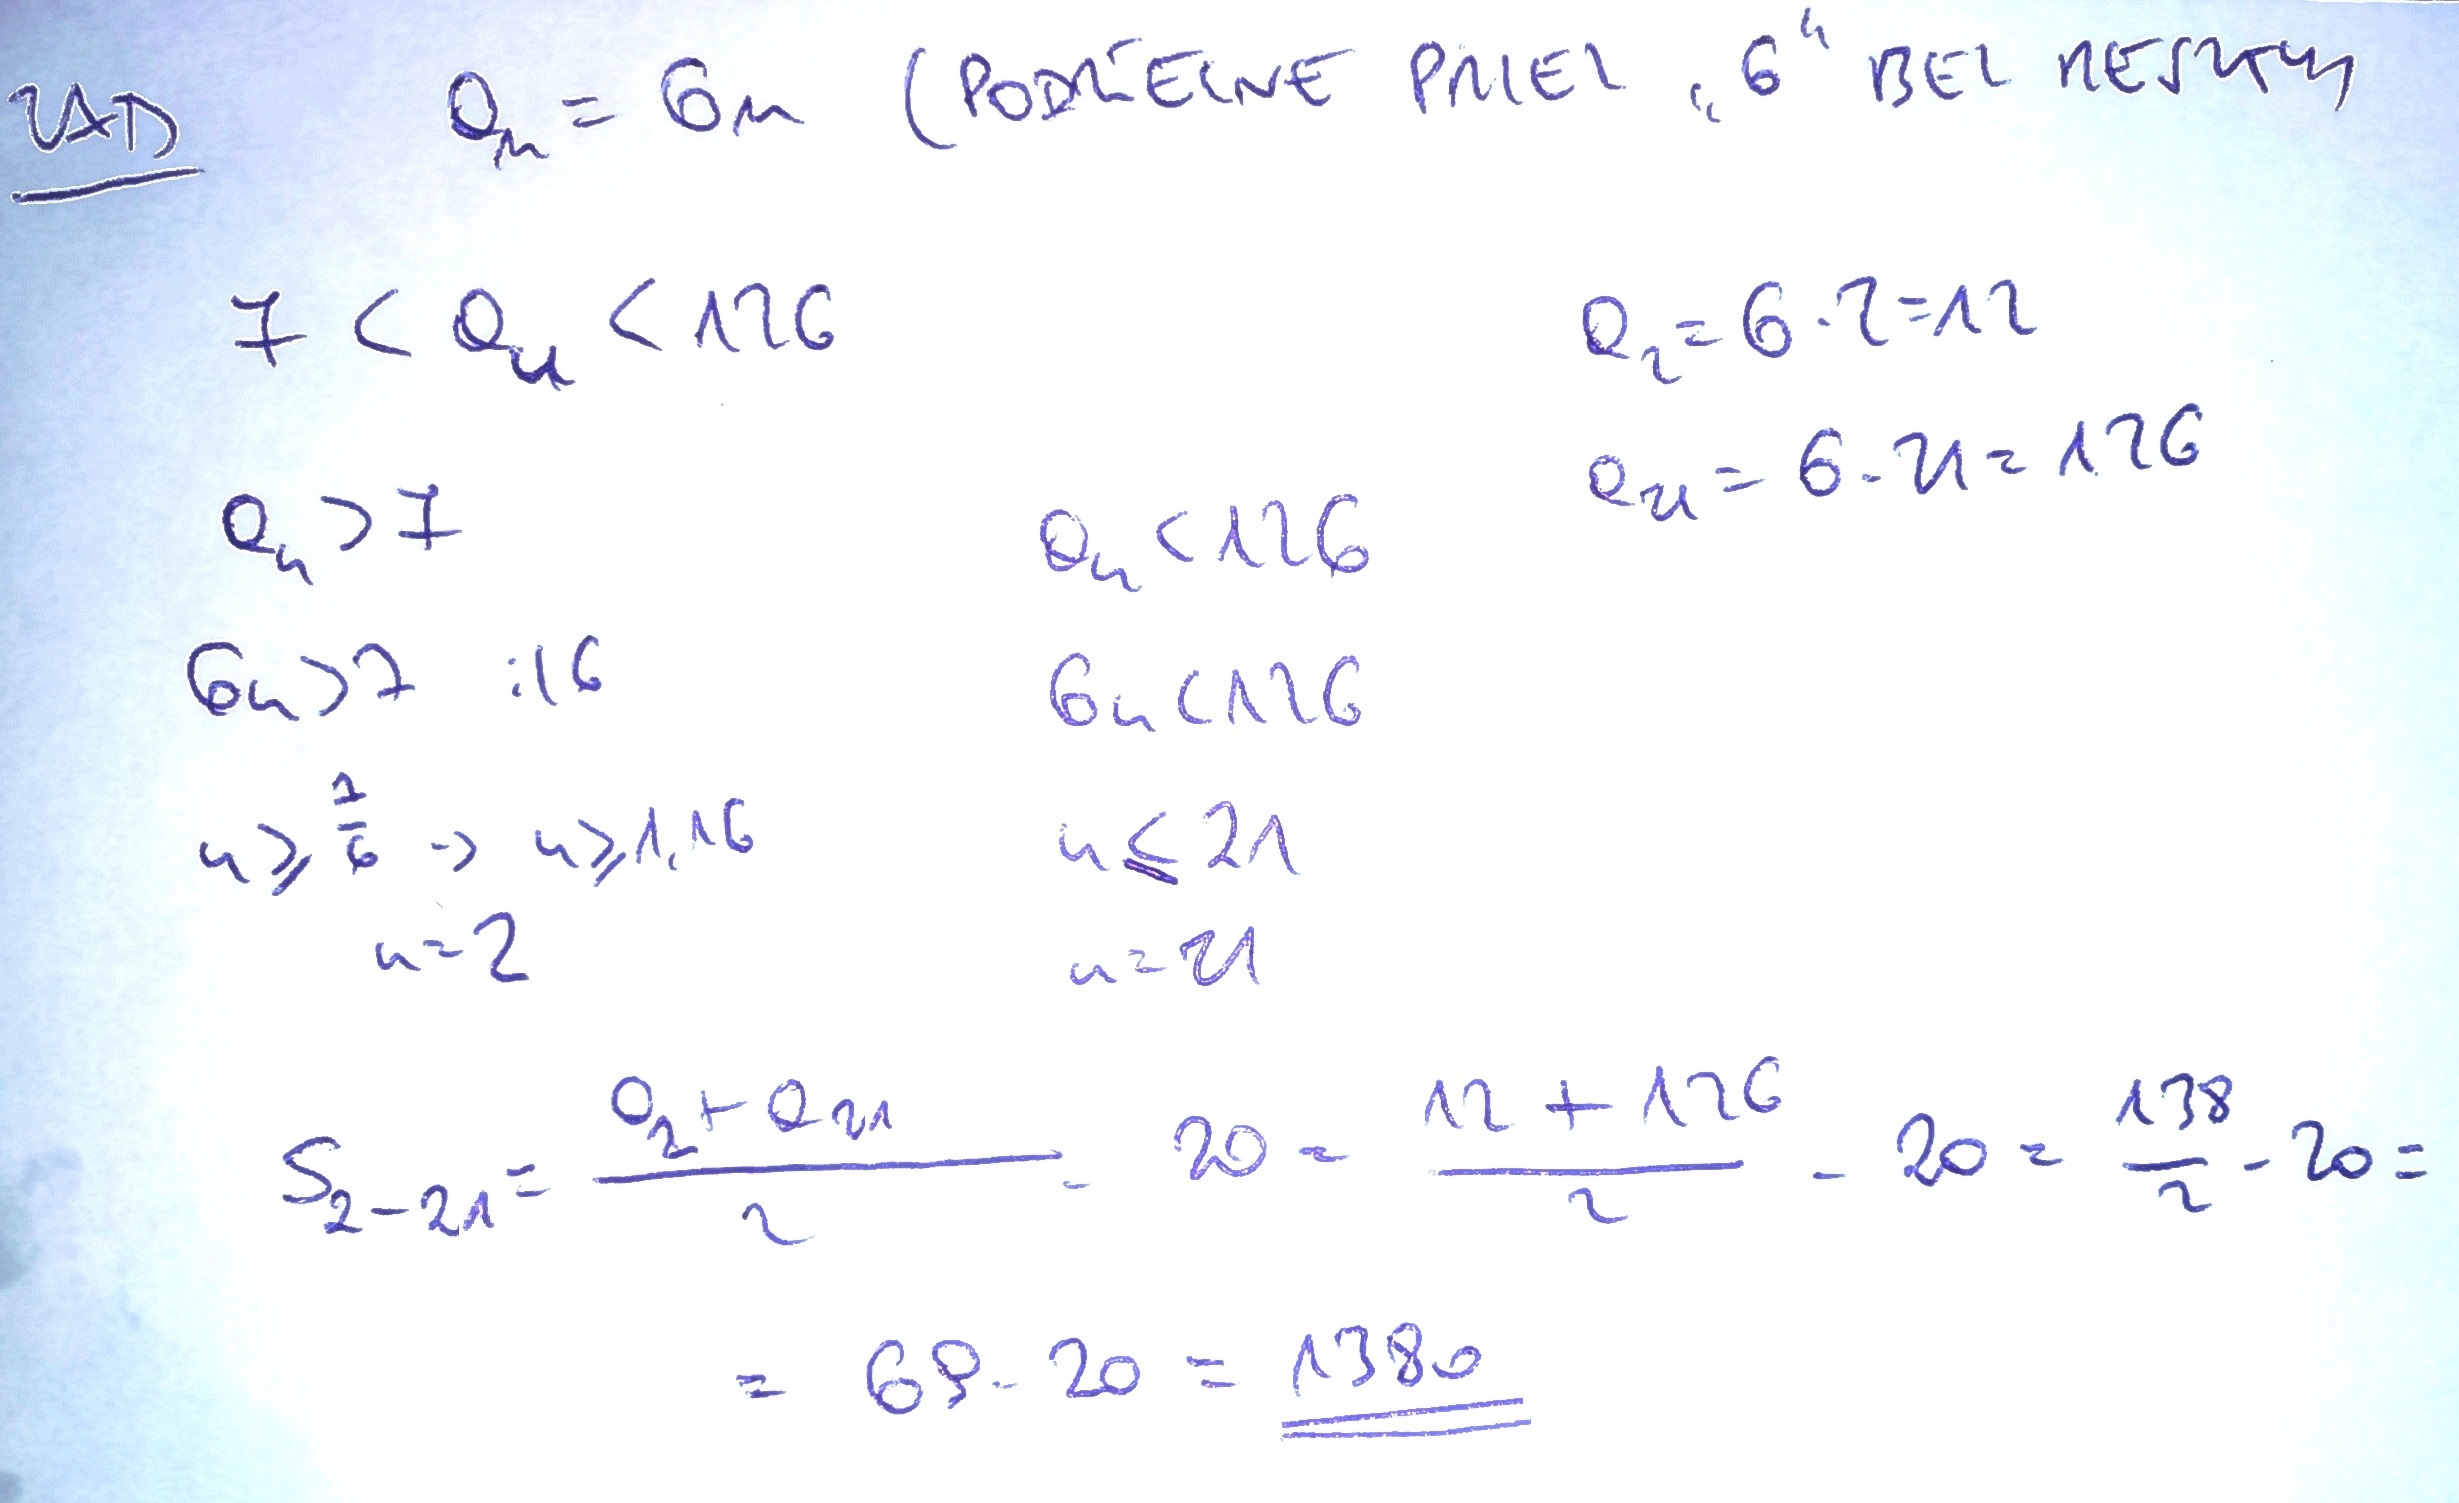 ZAD aₙ = 6n (PODZIELNE PRZEZ „6" BEZ RESZTY)
7 < aₙ < 126
a₂ = 6 · 2 = 12
a₂₁ = 6 · 21 = 126
aₙ > 7
aₙ < 126
6n > 7 :|6
6n < 126
n ≥ 7/6 -> n ≥ 1,16
n ≤ 21
n = 2
n = 21
S₂₋₂₁ = (a₂ + a₂₁)/2 · 20 = (12 + 126)/2 · 20 = 138/2 · 20 =
= 69 · 20 = 1380